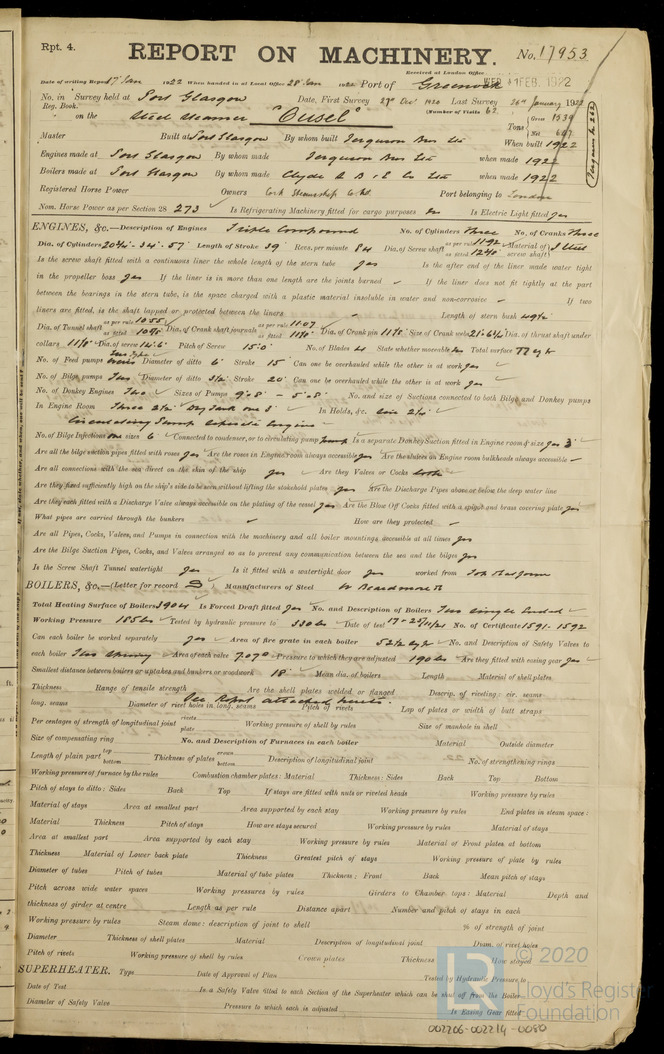 Rpt. 4.
REPORT ON MACHINERY.
No. 17953
Received at London Office WED. 1 FEB. 1922
Date of writing Report 17 Jan 1922 When handed in at Local Office 28 Jan 1922 Port of Greenock
No. in Survey held at Port Glasgow Date, First Survey 27th Dec. 1920 Last Survey 26th January 1922
Reg. Book. (Number of Visits 62
on the Steel Steamer "Ousel"
Tons Gross 1534
Net 607
Master Built at Port Glasgow By whom built Ferguson Bros Ltd When built 1922
Engines made at Port Glasgow By whom made Ferguson Bros Ltd when made 1922
Boilers made at Port Glasgow By whom made Clyde S B & E Co Ltd when made 1922
Registered Horse Power Owners Cork Steamship Co Ltd. Port belonging to London
Nom. Horse Power as per Section 28 273 Is Refrigerating Machinery fitted for cargo purposes no Is Electric Light fitted yes
ENGINES, &c.—Description of Engines Triple Compound No. of Cylinders Three No. of Cranks Three
Dia. of Cylinders 20½"- 34"- 57" Length of Stroke 39" Revs. per minute 84 Dia. of Screw shaft as per rule 11.92 as fitted 12¼" Material of screw shaft S Steel
Is the screw shaft fitted with a continuous liner the whole length of the stern tube yes Is the after end of the liner made water tight
in the propeller boss yes If the liner is in more than one length are the joints burned - If the liner does not fit tightly at the part
between the bearings in the stern tube, is the space charged with a plastic material insoluble in water and non-corrosive - If two
liners are fitted, is the shaft lapped or protected between the liners - Length of stern bush 49½"
Dia. of Tunnel shaft as per rule 10.55 as fitted 10⅝" Dia. of Crank shaft journals as per rule 11.07 as fitted 11⅛" Dia. of Crank pin 11⅛" Size of Crank webs 21"×6¾" Dia. of thrust shaft under
collars 11⅛" Dia. of screw 14'.6" Pitch of Screw 15'.0" No. of Blades 4 State whether moveable no Total surface 77 sq ft
No. of Feed pumps Diameter of ditto 6" Stroke 15" Can one be overhauled while the other is at work yes
No. of Bilge pumps Two Diameter of ditto 3½" Stroke 20" Can one be overhauled while the other is at work yes
No. of Donkey Engines Two Sizes of Pumps No. and size of Suctions connected to both Bilge and Donkey pumps
In Engine Room Three 2½" one 3" In Holds, &c.
No. of Bilge Injections one sizes 6" Connected to condenser, or to circulating pump pump Is a separate Donkey Suction fitted in Engine room & size yes 3"
Are all the bilge suction pipes fitted with roses yes Are the roses in Engine room always accessible yes Are the sluices on Engine room bulkheads always accessible -
Are all connections with the sea direct on the skin of the ship yes Are they Valves or Cocks both
Are they fixed sufficiently high on the ship's side to be seen without lifting the stokehold plates yes Are the Discharge Pipes above or below the deep water line
Are they each fitted with a Discharge Valve always accessible on the plating of the vessel yes Are the Blow Off Cocks fitted with a spigot and brass covering plate yes
What pipes are carried through the bunkers - How are they protected -
Are all Pipes, Cocks, Valves, and Pumps in connection with the machinery and all boiler mountings accessible at all times yes
Are the Bilge Suction Pipes, Cocks, and Valves arranged so as to prevent any communication between the sea and the bilges yes
Is the Screw Shaft Tunnel watertight yes Is it fitted with a watertight door yes worked from Top Platform
BOILERS, &c.—(Letter for record S) Manufacturers of Steel W Beardmore
Total Heating Surface of Boilers 3904 Is Forced Draft fitted yes No. and Description of Boilers Two single ended
Working Pressure 185 lbs Tested by hydraulic pressure to 330 lbs Date of test No. of Certificate 1591-1592
Can each boiler be worked separately yes Area of fire grate in each boiler 52½ sq ft No. and Description of Safety Valves to
each boiler Two Spring Area of each valve 7.07" Pressure to which they are adjusted 190 lbs Are they fitted with easing gear yes
Smallest distance between boilers or uptakes and bunkers or woodwork 18" Mean dia. of boilers Length Material of shell plates
Thickness Range of tensile strength Are the shell plates welded or flanged Descrip. of riveting: cir. seams
See Report attached hereto.
long. seams Diameter of rivet holes in long. seams Pitch of rivets Lap of plates or width of butt straps
Per centages of strength of longitudinal joint rivets plate Working pressure of shell by rules Size of manhole in shell
Size of compensating ring No. and Description of Furnaces in each boiler Material Outside diameter
Length of plain part top bottom Thickness of plates crown bottom Description of longitudinal joint No. of strengthening rings
Working pressure of furnace by the rules Combustion chamber plates: Material Thickness: Sides Back Top Bottom
Pitch of stays to ditto: Sides Back Top If stays are fitted with nuts or riveted heads Working pressure by rules
Material of stays Area at smallest part Area supported by each stay Working pressure by rules End plates in steam space:
Material Thickness Pitch of stays How are stays secured Working pressure by rules Material of stays
Area at smallest part Area supported by each stay Working pressure by rules Material of Front plates at bottom
Thickness Material of Lower back plate Thickness Greatest pitch of stays Working pressure of plate by rules
Diameter of tubes Pitch of tubes Material of tube plates Thickness: Front Back Mean pitch of stays
Pitch across wide water spaces Working pressures by rules Girders to Chamber tops: Material Depth and
thickness of girder at centre Length as per rule Distance apart Number and pitch of stays in each
Working pressure by rules Steam dome: description of joint to shell % of strength of joint
Diameter Thickness of shell plates Material Description of longitudinal joint Diam. of rivet holes
Pitch of rivets Working pressure of shell by rules Crown plates Thickness How stayed
SUPERHEATER. Type Date of Approval of Plan Tested by Hydraulic Pressure to
Date of Test Is a Safety Valve fitted to each Section of the Superheater which can be shut off from the Boiler
Diameter of Safety Valve Pressure to which each is adjusted Is Easing Gear fitted
© 2020
LR
Lloyd's Register
Foundation
002206-002214-0080